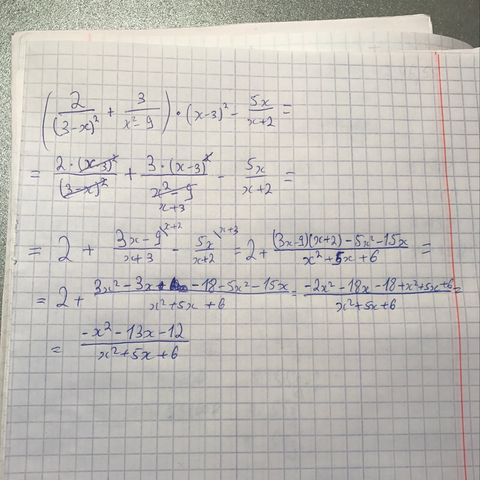 (2/(3-x)² + 3/(x²-9)) • (x-3)² - 5x/(x+2) =
= 2·(x-3)²/(3-x)² + 3·(x-3)²/(x²-9) x+3 - 5x/(x+2) =
= 2 + (3x-9)/(x+3) \x+2 - 5x/(x+2) \x+3 = 2 + ((3x-9)(x+2)-5x²-15x)/(x²+5x+6) =
= 2 + (3x²-3x-18-5x²-15x)/(x²+5x+6) = (-2x²-18x-18+x²+5x+6)/(x²+5x+6) =
= (-x²-13x-12)/(x²+5x+6)